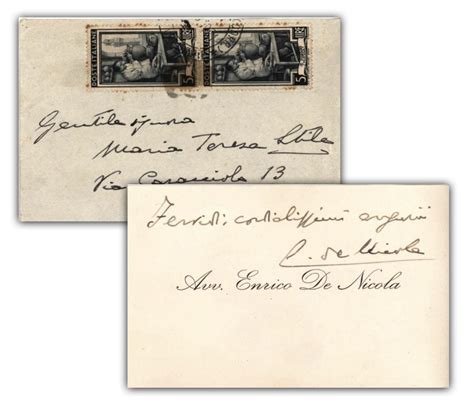 POSTE ITALIANE
5
POSTE ITALIANE
5
Gentile signora
Maria Teresa Stile
Via Caracciolo 13
Fervidi cordialissimi auguri
E. de Nicola
Avv. Enrico De Nicola